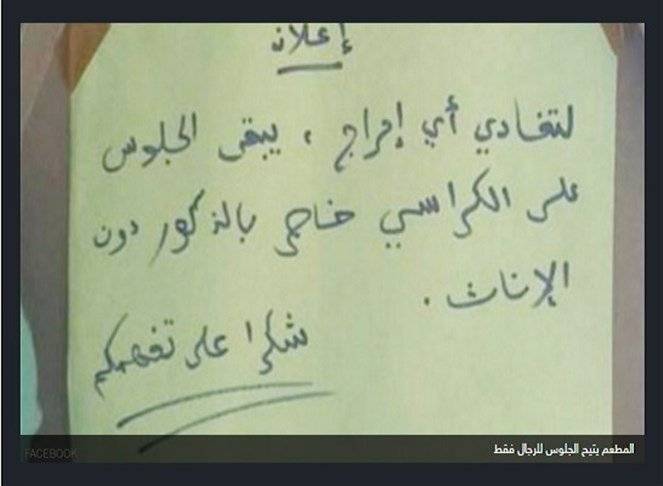 إعلان
لتفادي أي إحراج ، يبقى الجلوس
على الكراسي خاص بالذكور دون
الإناث .
شكرا على تفهمكم
FACEBOOK
المطعم يتيح الجلوس للرجال فقط